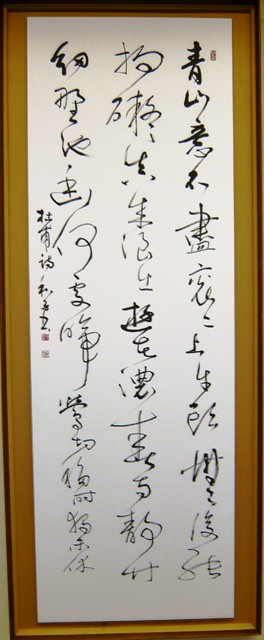 青山意不盡袞々上牛頭無復能
拘礙真成浪出遊花濃春寺靜竹
細野池幽何處啼鶯切移時獨未休
杜甫詩